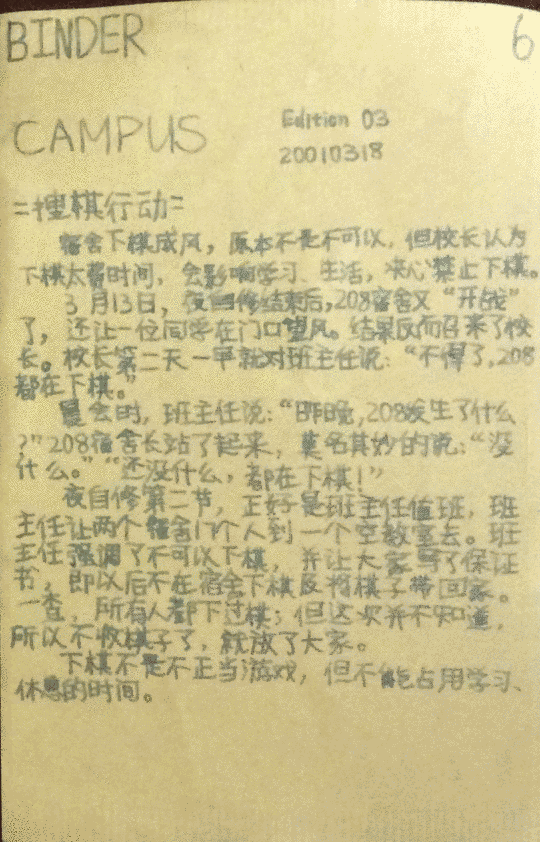 BINDER 6
CAMPUS
Edition 03
20010318
=搜棋行动=
宿舍下棋成风，原本不是不可以，但校长认为
下棋太费时间，会影响学习、生活，决心禁止下棋。
3月13日，夜自修结束后，208宿舍又“开战”
了，还让一位同学在门口望风。结果反而召来了校
长。校长第二天一早就对班主任说：“不得了，208
都在下棋。”
晨会时，班主任说：“昨晚，208发生了什么
？”208宿舍长站了起来，莫名其妙的说：“没
什么。”“还没什么，都在下棋！”
夜自修第二节，正好是班主任值班，班
主任让两个宿舍 个人到一个空教室去。班
主任强调了不可以下棋，并让大家写了保证
书，即以后不在宿舍下棋及将棋子带回家。
一查，所有人都下过棋；但这次并不知道，
所以不收棋子了，就放了大家。
下棋不是不正当游戏，但不能占用学习、
休息的时间。